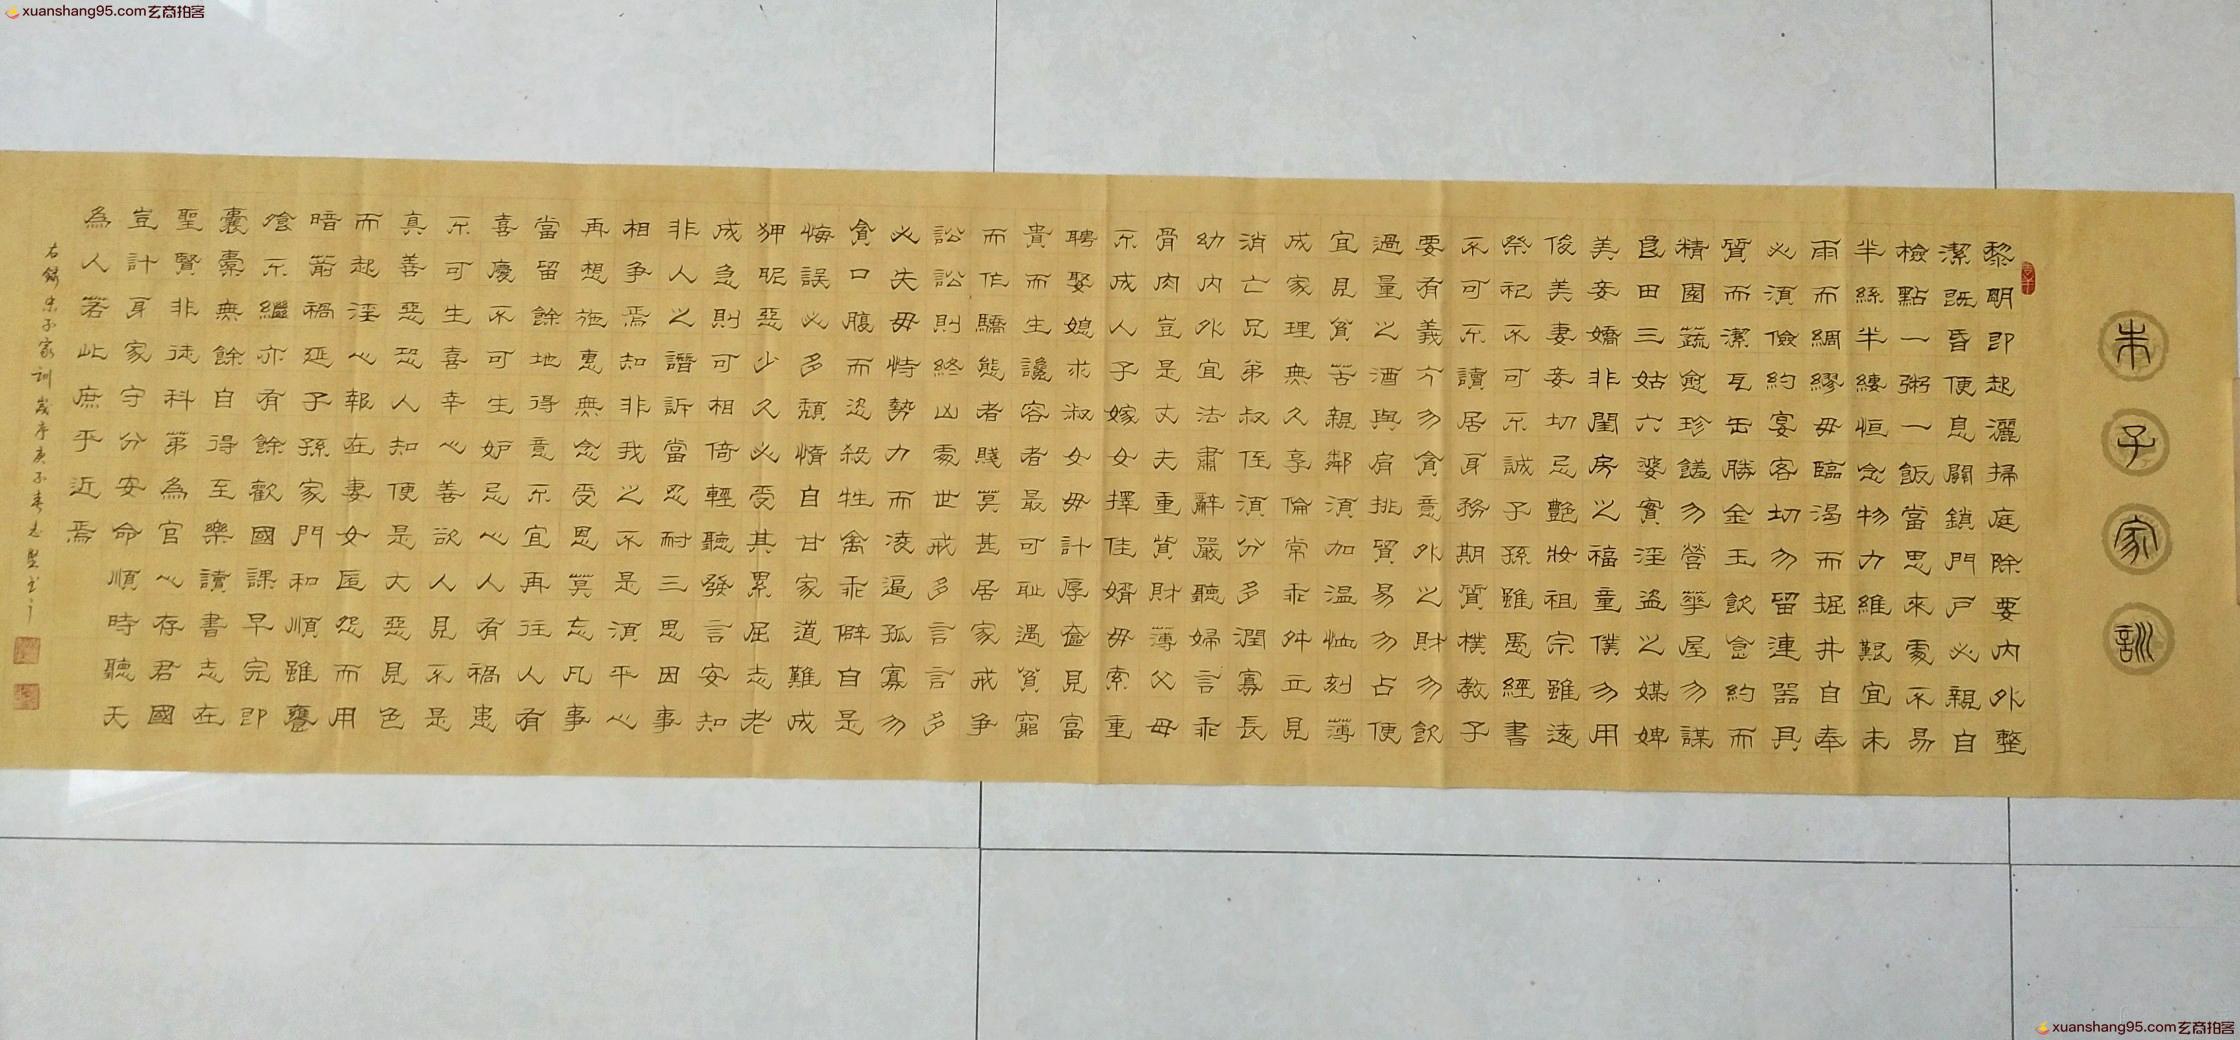 xuanshang95.com玄商拍客
朱子家訓
黎明即起灑掃庭除要內外整
潔既昏便息關鎖門戶必親自
檢點一粥一飯當思來處不易
半絲半縷恒念物力維艱宜未
雨而綢繆毋臨渴而掘井自奉
必須儉約宴客切勿留連器具
質而潔瓦缶勝金玉飲食約而
精園蔬愈珍饈勿營華屋勿謀
良田三姑六婆實淫盜之媒婢
美妾嬌非閨房之福童僕勿用
俊美妻妾切忌艷妝祖宗雖遠
祭祀不可不誠子孫雖愚經書
不可不讀居身務期質樸教子
要有義方勿貪意外之財勿飲
過量之酒與肩挑貿易勿占便
宜見貧苦親鄰須加溫恤刻薄
成家理無久享倫常乖舛立見
消亡兄弟叔侄須分多潤寡長
幼內外宜法肅辭嚴聽婦言乖
骨肉豈是丈夫重貲財薄父母
不成人子嫁女擇佳婿毋索重
聘娶媳求淑女毋計厚奩見富
貴而生讒容者最可恥遇貧窮
而作驕態者賤莫甚居家戒爭
訟訟則終凶處世戒多言言多
必失毋恃勢力而凌逼孤寡勿
貪口腹而恣殺牲禽乖僻自是
悔誤必多頹惰自甘家道難成
狎昵惡少久必受其累屈志老
成急則可相倚輕聽發言安知
非人之譖訴當忍耐三思因事
相爭焉知非我之不是須平心
再想施惠無念受恩莫忘凡事
當留餘地得意不宜再往人有
喜慶不可生妒忌心人有禍患
不可生喜幸心善欲人見不是
真善惡恐人知便是大惡見色
而起淫心報在妻女匿怨而用
暗箭禍延子孫家門和順雖饔
飧不繼亦有餘歡國課早完即
囊橐無餘自得至樂讀書志在
聖賢非徒科第為官心存君國
豈計身家守分安命順時聽天
為人若此庶乎近焉
右錄朱子家訓歲序庚子春
xuanshang95.com玄商拍客